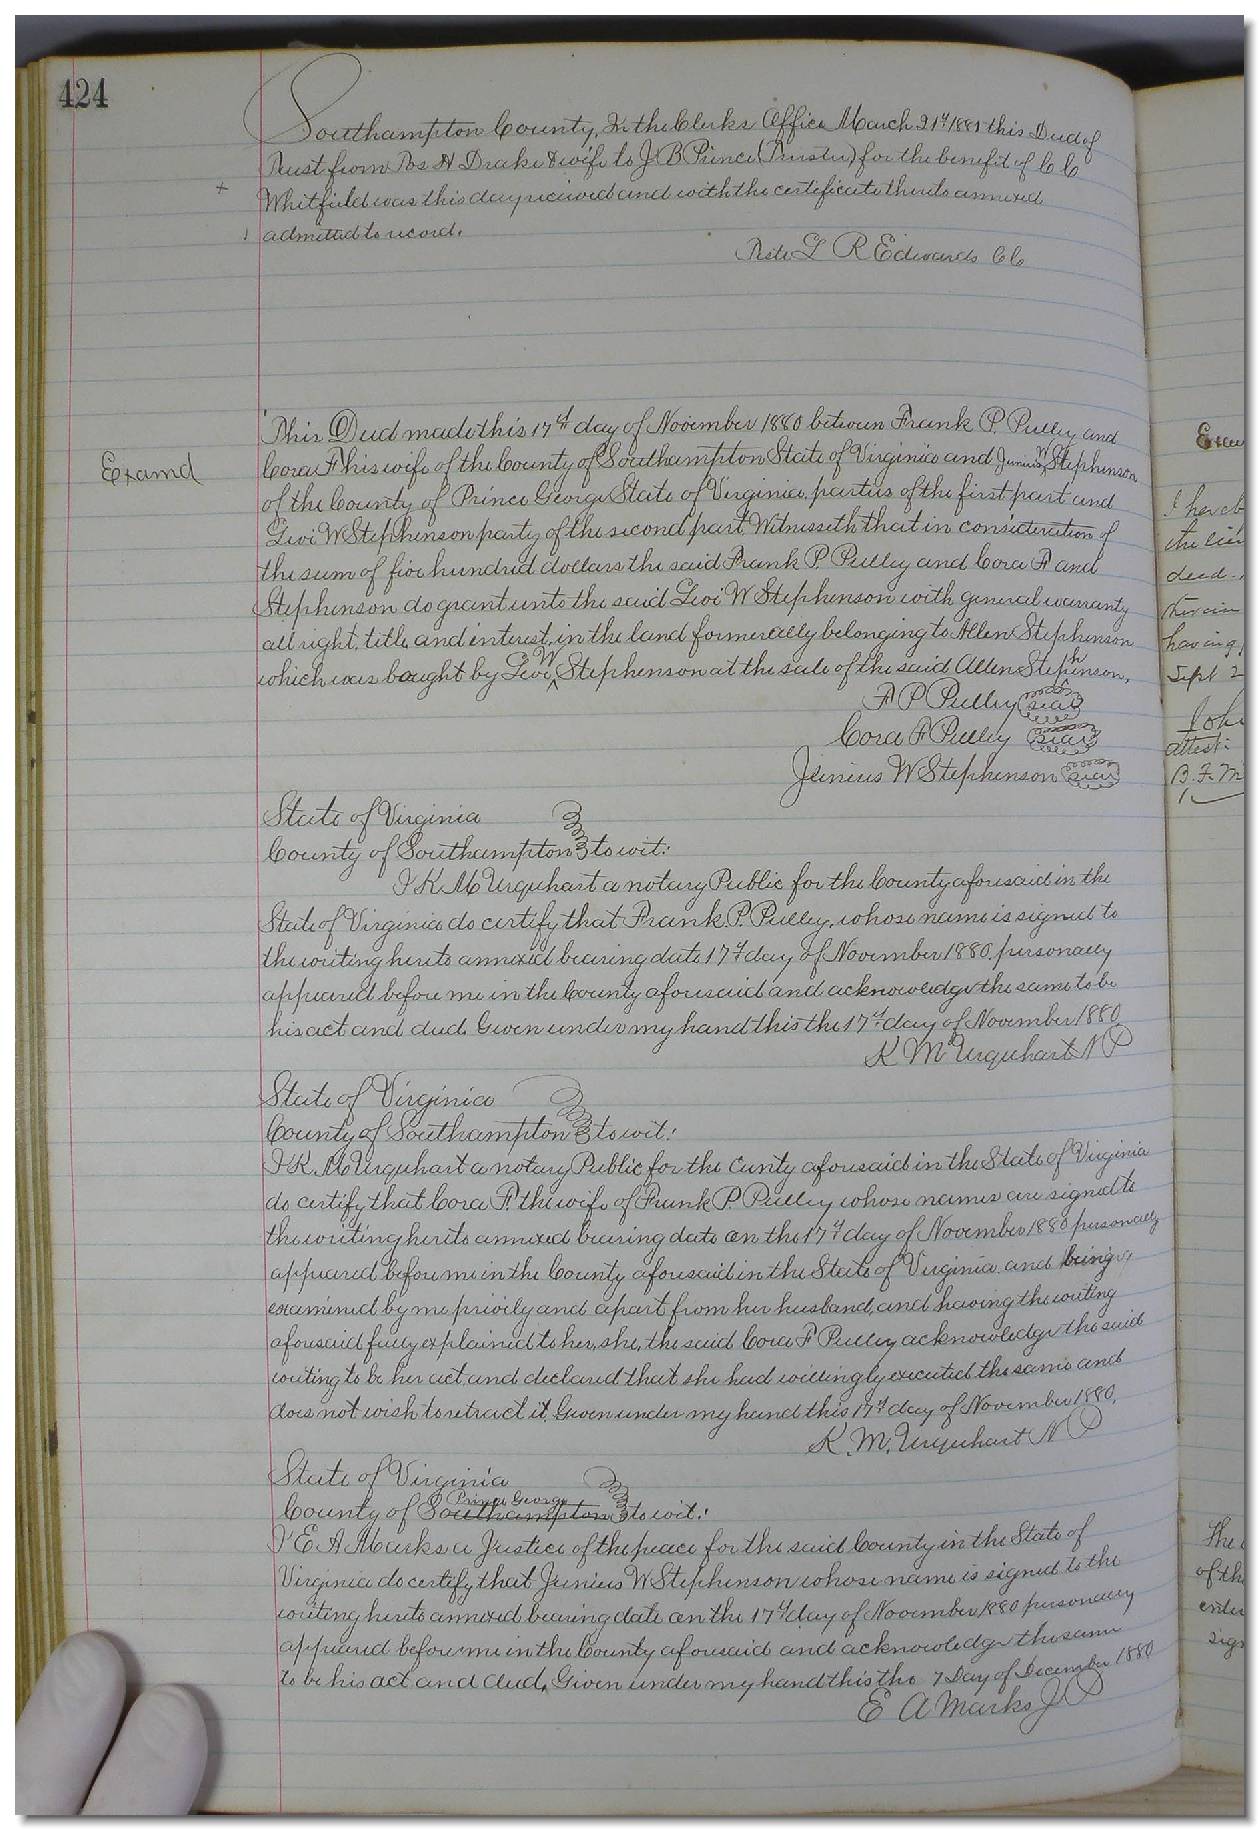 424
Southampton County, In the Clerks Office March 21st 1881 this Deed of
Trust from Ros H Drake & wife to J. B. Prince (Trustee) for the benefit of C C
+
Whitfield was this day received and with the certificate thereto annexed
admitted to record.
Teste L R Edwards CC
This Deed made this 17th day of November 1880 between Frank P. Pulley and
Examd
Cora F his wife of the County of Southampton State of Virginia and Junius W Stephenson
of the County of Prince George State of Virginia, parties of the first part and
Levi W Stephenson party of the second part, Witnesseth that in consideration of
the sum of five hundred dollars the said Frank P. Pulley and Cora F. and
Stephenson do grant unto the said Levi W Stephenson with general warranty
all right, title, and interest, in the land formerally belonging to Allen Stephenson
which was bought by Levi W Stephenson at the sale of the said Allen Stephinson,
F P Pulley seal
Cora F Pulley seal
Junius W Stephenson seal
State of Virginia
County of Southampton to wit:
I K. M Urquhart a notary Public for the County aforesaid in the
State of Virginia do certify that Frank. P. Pulley, whose name is signed to
the writing hereto annexed bearing date 17th day of November 1880. personally
appeared before me in the County aforesaid and acknowledge the same to be
his act and deed. Given under my hand this the 17th day of November 1880
K M Urquhart N P
State of Virginia
County of Southampton to wit:
I K. M Urquhart a notary Public for the Cunty aforesaid in the State of Virginia
do certify that Cora F. the wife of Frank P. Pulley whose names are signed to
the writing hereto annexed bearing date on the 17th day of November 1880 personally
appeared before me in the County aforesaid in the State of Virginia and being
examined by me privily and apart from her husband, and having the writing
aforesaid fully explained to her, she, the said Cora F Pulley acknowledge the said
writing to be her act, and declared that she had willingly executed the same and
does not wish to retract it, Given under my hand this 17th day of November 1880.
K. M. Urquhart N P
State of Virginia
Prince George
County of Southampton to wit:
I E A Marks a Justice of the peace for the said County in the State of
Virginia do certify that Junius W Stephenson whose name is signed to the
writing hereto annexed bearing date on the 17th day of November 1880 personally
appeared before me in the County aforesaid and acknowledge the same
to be his act and deed, Given under my hand this the 7 Day of December 1880
E A Marks J P
I hereb
the lien
deed
therein
having
Sept 2
John
attest:
B. F. M
The
of the
enter
sign